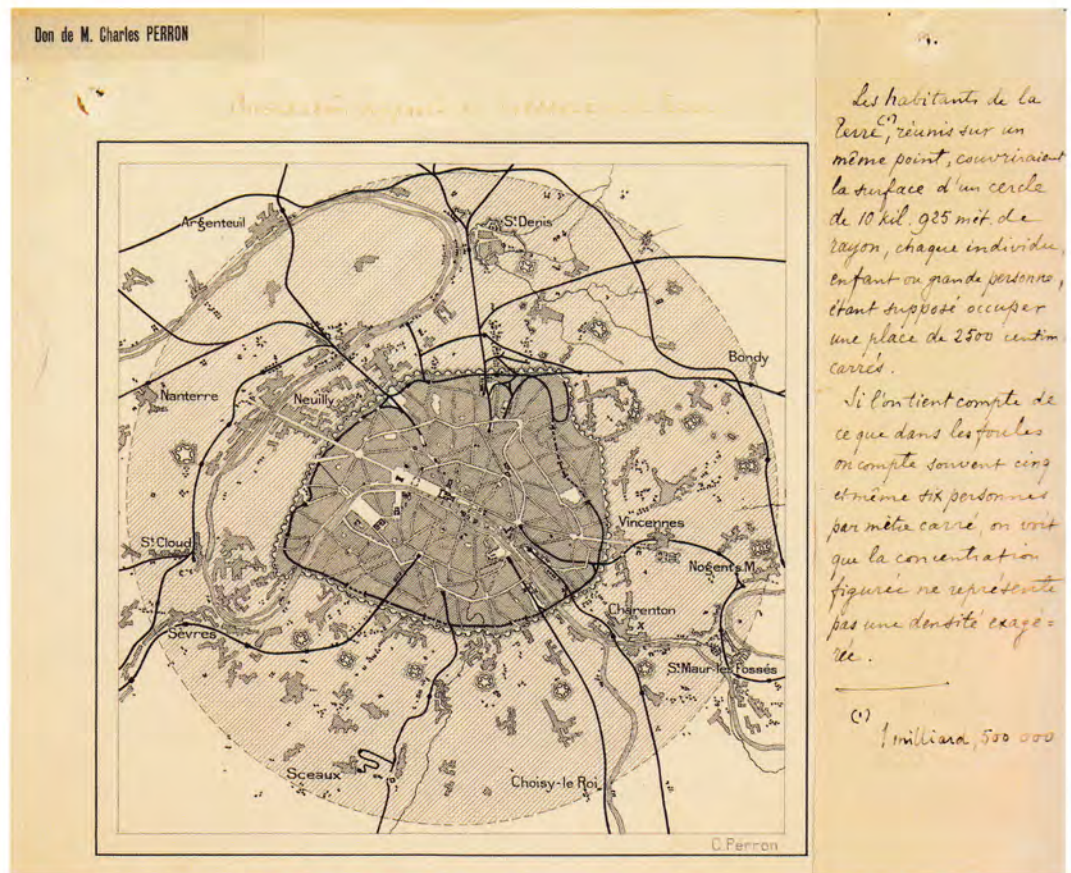 Don de M. Charles PERRON
Argenteuil
St Denis
Bondy
Nanterre
Neuilly
St Cloud
Vincennes
Nogent s. M.
Sèvres
Charenton
St Maur-les-Fossés
Sceaux
Choisy-le Roi
C. Perron
Les habitants de la
Terre (1), réunis sur un
même point, couvriraient
la surface d'un cercle
de 10 kil. 925 mèt. de
rayon, chaque individu,
enfant ou grande personne,
étant supposé occuper
une place de 2500 centim.
carrés.
Si l'on tient compte de
ce que dans les foules
on compte souvent cinq
et même six personnes
par mètre carré, on voit
que la concentration
figurée ne représente
pas une densité exagé=
rée.
(1)
1 milliard, 500 000